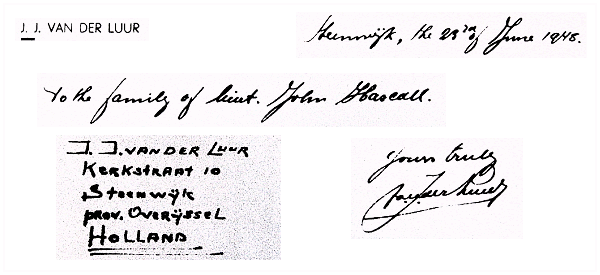 J. J. VAN DER LUUR
Steenwijk, the 23rd of June 1948.
To the family of lieut. John Hascall.
J. J. VAN DER LUUR
KERKSTRAAT 10
STEENWIJK
PROV. OVERIJSSEL
HOLLAND
yours truly